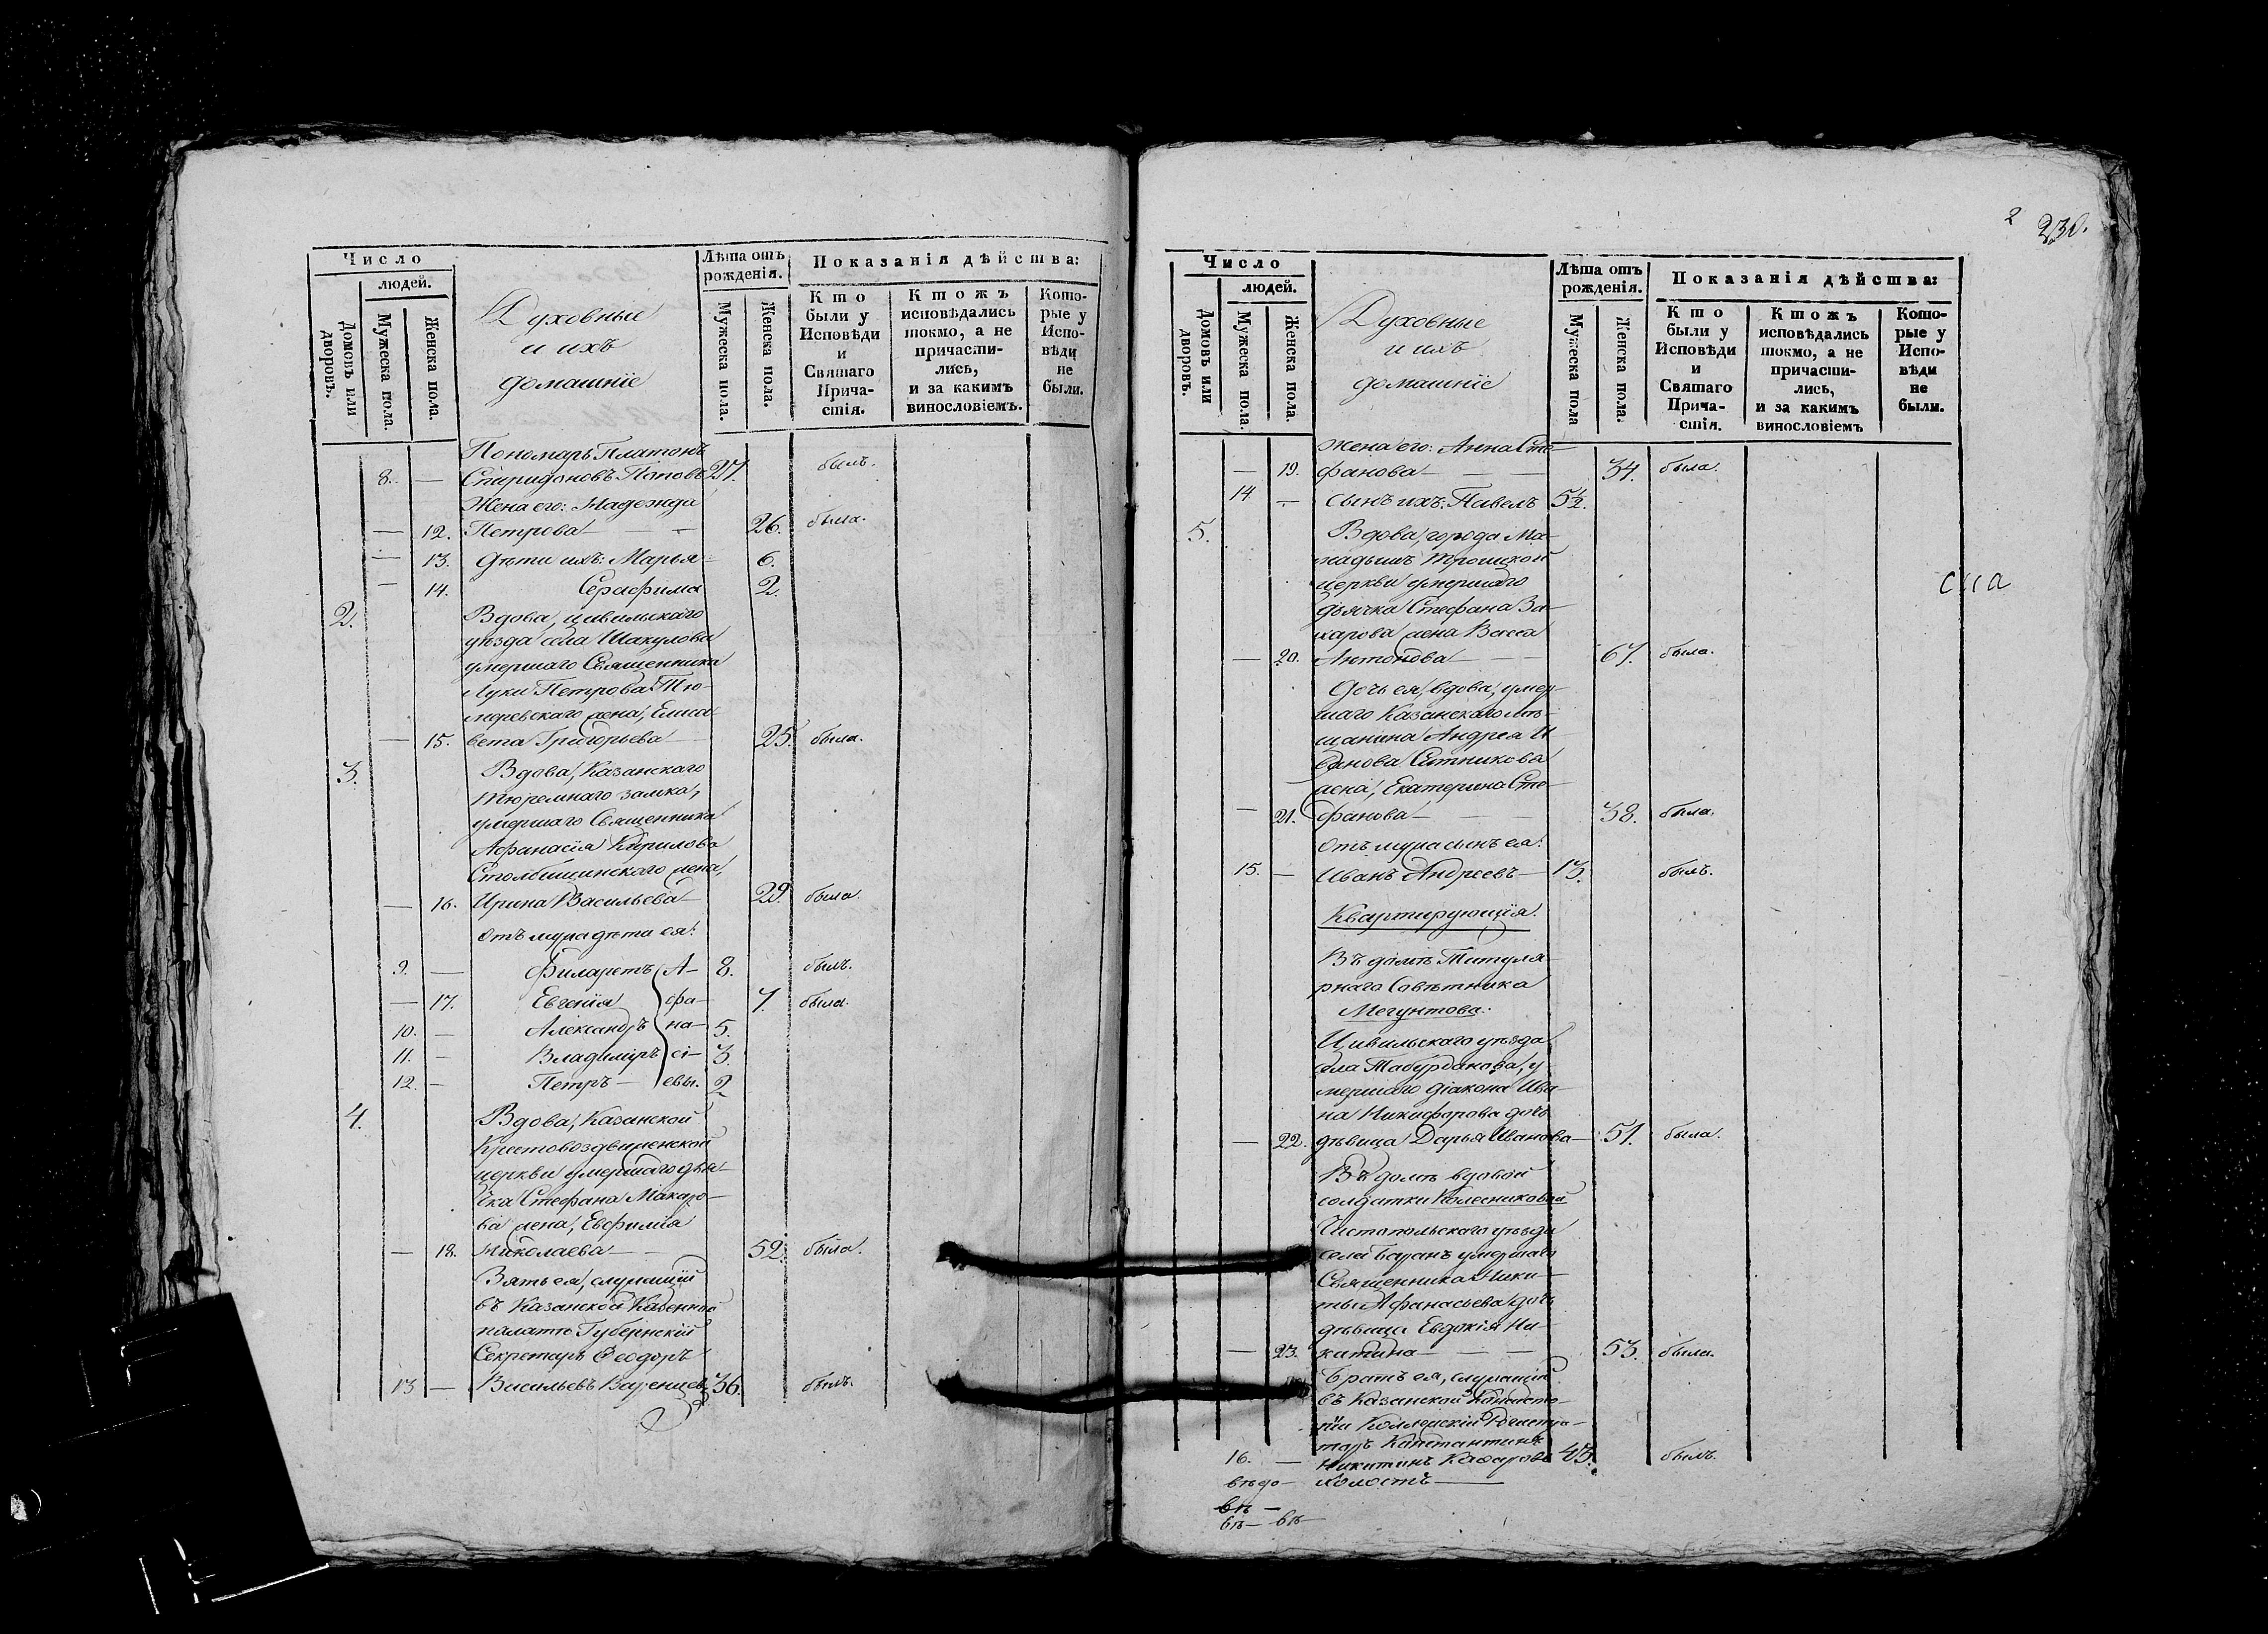 Число
людей.
Домовъ или дворовъ.
Мужеска пола.
Женска пола.
Духовные
и ихъ
домашніе
Лѣта отъ
рожденія.
Мужеска пола.
Женска пола.
Показанія дѣйства:
Кто
были у
Исповѣди
и
Святаго
Прича-
стія.
Ктожъ
исповѣдались
токмо, а не
причасти-
лись,
и за какимъ
винословіемъ.
Кото-
рые у
Испо-
вѣди
не
были.
Пономарь Платонъ
8. — Спиридоновъ Поповъ 27. былъ.
Жена его: Надежда
— 12. Петрова — — 26. была.
— 13. Дѣти ихъ: Марья — 6.
— 14. Серафима 2.
2. Вдова, цивильскаго
уѣзда села Шакулова
умершаго Священника
Луки Петрова Тю-
меревскаго жена, Елиса-
— 15. вета Григорьева — 25. была.
3. Вдова, Казанскаго
тюремнаго замка,
умершаго Священника
Афанасія Кирилова
Столбищинскаго жена,
— 16. Ирина Васильева — 29. была.
Отъ мужа дѣти ея:
9. — Филаретъ А- 8. былъ.
— 17. Евгенія фа- 7. была.
10. — Александръ на- 5.
11. — Владиміръ сі- 3.
12. — Петръ — евы. 2
4. Вдова, Казанской
Крестовоздвиженской
церкви умершаго дья-
чка Стефана Макаро-
ва жена, Евфимія
— 18. Николаева — — 52. была.
Зять ея, служащій
въ Казанской Казенной
палатѣ Губернскій
Секретарь Ѳеодоръ
13 — Васильевъ Варенцевъ 36. былъ.
2 230.
Число
людей.
Домовъ или дворовъ.
Мужеска пола.
Женска пола
Духовные
и ихъ
домашніе
Лѣта отъ
рожденія.
Мужеска пола
Женска пола.
Показанія дѣйства:
Кто
были у
Исповѣди
и
Святаго
Прича-
стія.
Ктожъ
исповѣдались
токмо, а не
причасти-
лись,
и за какимъ
винословіемъ
Кото-
рые у
Испо-
вѣди
не
были.
Жена его: Анна Сте-
— 19. фанова — — 34. была.
14 — Сынъ ихъ: Павелъ 5½.
5. Вдова, города Ма-
мадышъ Троицкой
церкви умершаго
дьячка Стефана За-
харова жена Васса
— 20. Антонова — — 67. была.
Дочь ея, вдова, умер-
шаго Казанскаго мѣ-
щанина Андрея И-
ванова Ситникова
жена, Екатерина Сте-
— 21. фанова — — 38. была.
Отъ мужа сынъ ея:
15. — Иванъ Андреевъ — 13. былъ.
Квартирующія.
Въ домѣ Титуля-
рнаго Совѣтника
Мегунтова.
Цивильскаго уѣзда
села Табурданова, у-
мершаго Діакона Ива-
на Никифорова дочь
— 22. дѣвица Дарья Иванова — 51. была.
Въ домѣ вдовой
солдатки Колесниковой
Чистопольскаго уѣзда
села Баранъ умершаго
Священника Ники-
ты Афанасьева дочь
дѣвица Евдокія Ни-
— 23. китина — — 53. была.
Братъ ея, служащій
въ Казанской Консисто-
ріи Коллежскій Регистра-
торъ Константинъ
16. — Никитинъ 43. былъ.
холостъ —